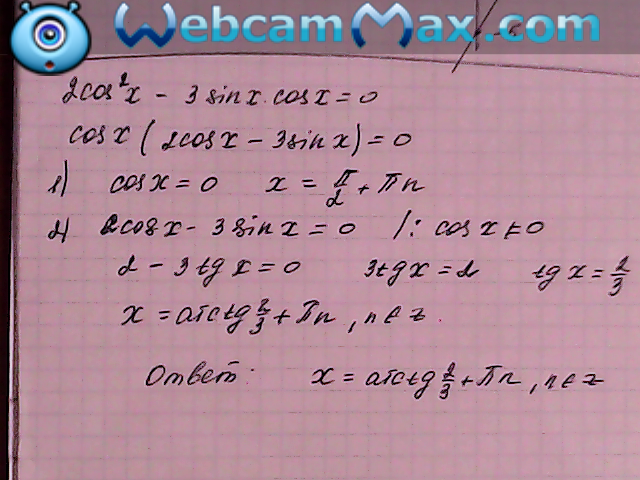 WebcamMax.com
2cos²x - 3 sin x · cos x = 0
cos x ( 2cos x - 3 sin x ) = 0
1) cos x = 0 x = π/2 + πn
2) 2cos x - 3 sin x = 0 /: cos x ≠ 0
2 - 3 tg x = 0 3tg x = 2 tg x = 2/3
x = arctg 2/3 + πn , n ∈ z .
Ответ: x = arctg 2/3 + πn , n ∈ z